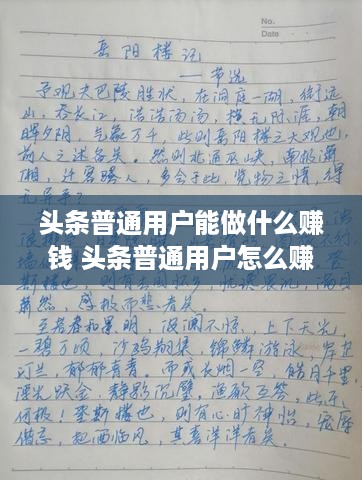 No.
Date
岳阳楼记
——节选
予观夫巴陵胜状，在洞庭一湖，衔远
山，吞长江，浩浩汤汤，横无际涯，朝
晖夕阴，气象万千，此则岳阳楼之大观也，
前人之述备矣。然则北通巫峡，南极潇
湘，迁客骚人，多会于此，览物之情，得
无异乎？
头条普通用户能做什么赚
钱 头条普通用户怎么赚
萧然，感极而悲者矣。
至若春和景明，波澜不惊，上下天光，
一碧万顷，沙鸥翔集，锦鳞游泳，岸芷
汀兰，郁郁青青。而或长烟一空，皓月千里，
浮光跃金，静影沉璧，渔歌互答，此乐
何极！登斯楼也，则有心旷神怡，宠辱
偕忘，把酒临风，其喜洋洋者矣。